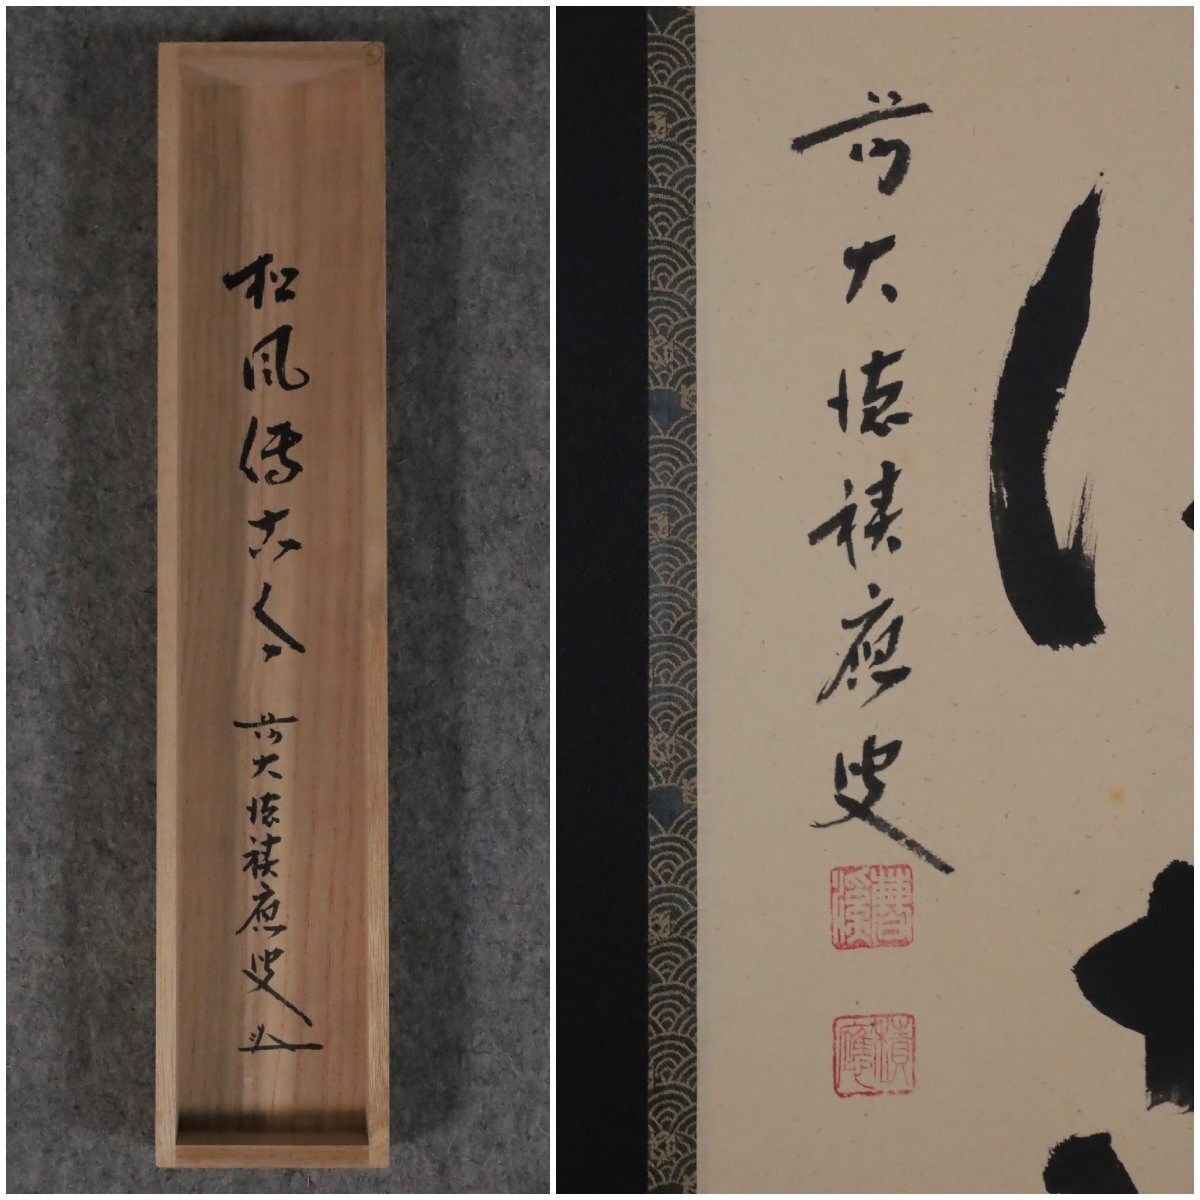 松風傳古今
前大徳積應叟
前大徳積應叟
曹溪
積應